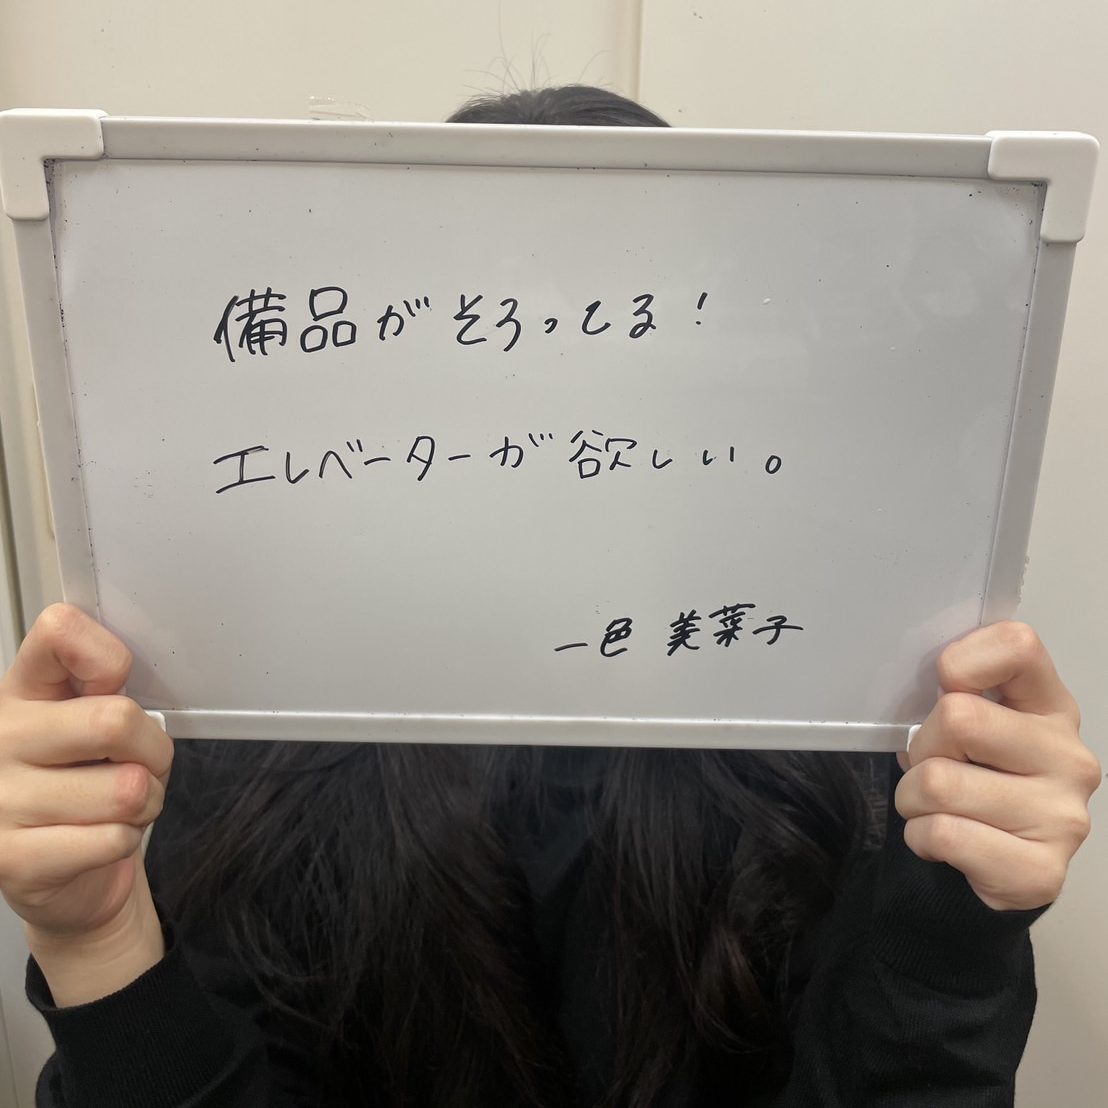 備品がそろってる!
エレベーターが欲しい。
一色 美菜子